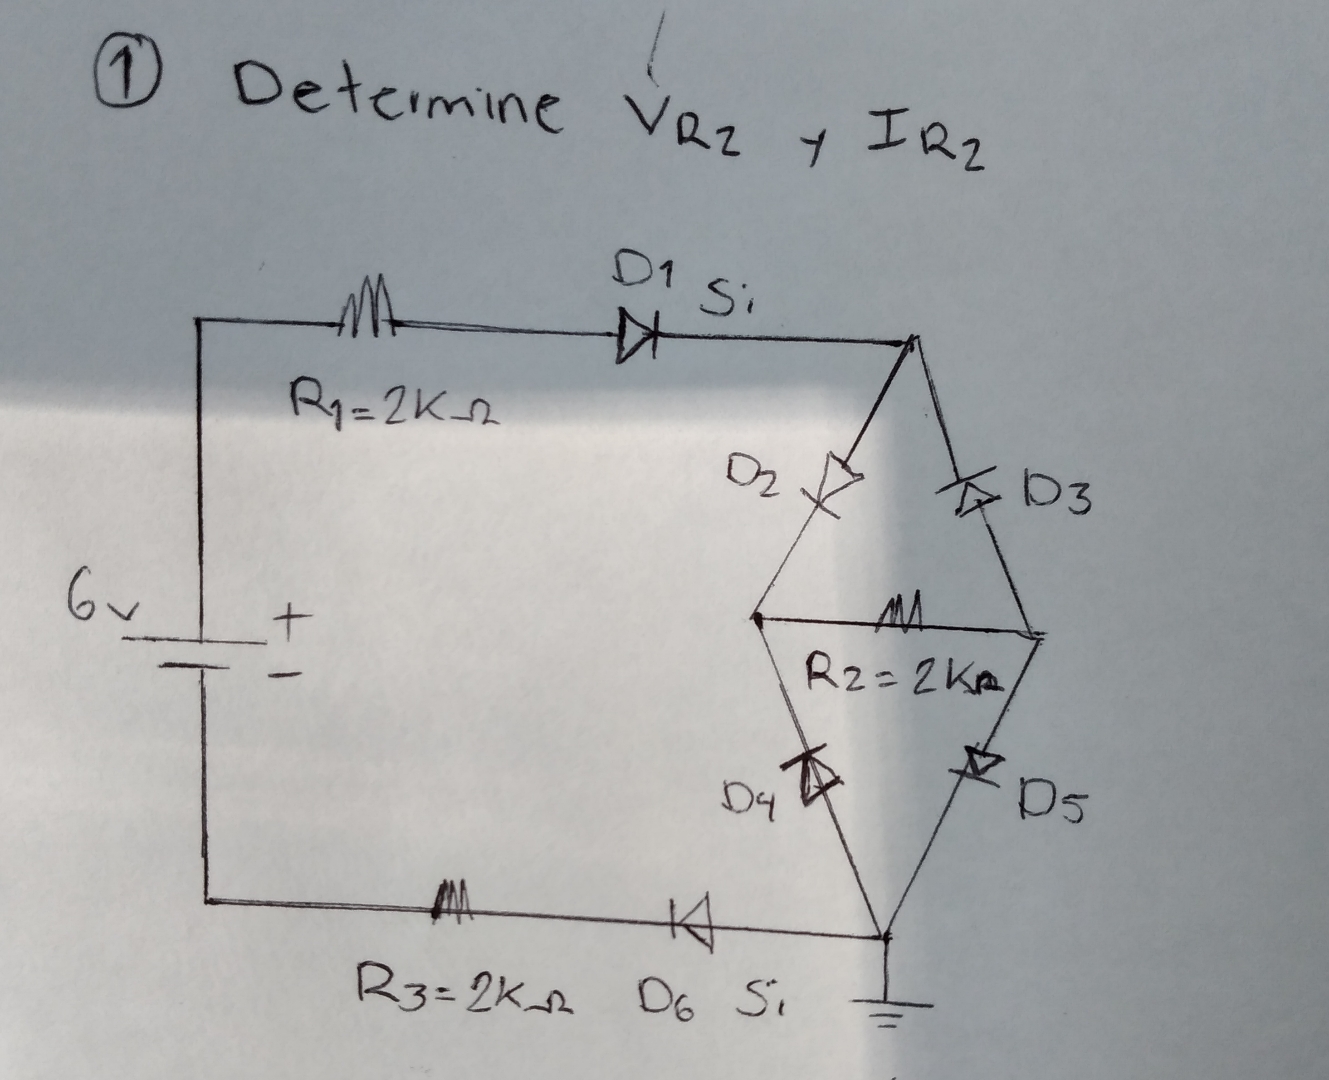 ① Determine V_R2 y I_R2
D1 Si
R1=2KΩ
D2
D3
6v
+
-
R2=2KΩ
D4
D5
R3=2KΩ D6 Si